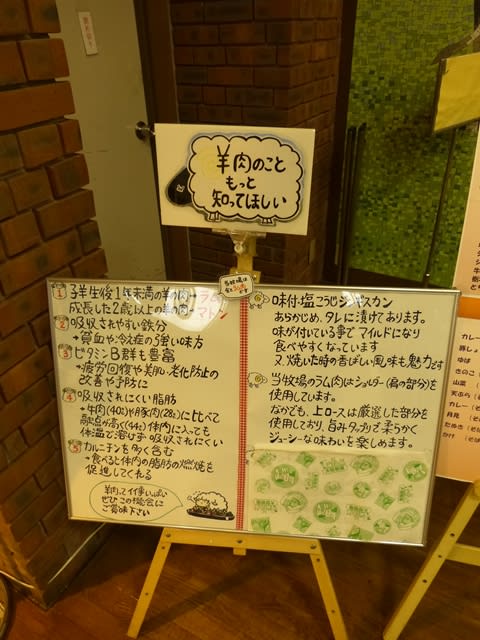 羊肉のこと
もっと
知ってほしい
当牧場は
1 子羊生後1年未満の羊の肉→ラム
成長した2歳以上の羊の肉→マトン
2 吸収されやすい鉄分
→貧血や冷え症の強い味方
3 ビタミンB群も豊富
→疲労回復や美肌・老化防止の
改善や予防に
4 吸収されにくい脂肪
→牛肉(40℃)や豚肉(28℃)に比べて
融点が高く(44℃)体内に入っても
体温で溶けず吸収されにくい
5 カルニチンを多く含む
→食べると体内の脂肪の燃焼を
促進してくれる
羊肉ってイイ事いっぱい
ぜひこの機会に
ご賞味下さい
味付・塩こうじジンギスカン
あらかじめ、タレに漬けてあります。
味が付いている事でマイルドになり
食べやすくなっています
又、焼いた時の香ばしい風味も魅力です
当牧場のラム肉はショルダー(肩の部分)を
使用しています。
なかでも、上ロースは厳選した部分を
使用しており、旨みタップリで柔らかく
ジューシーな味わいを楽しめます。
カレー
ゆば
きのこ
山菜
天ぷら
カレー
月見
たぬき
かけ